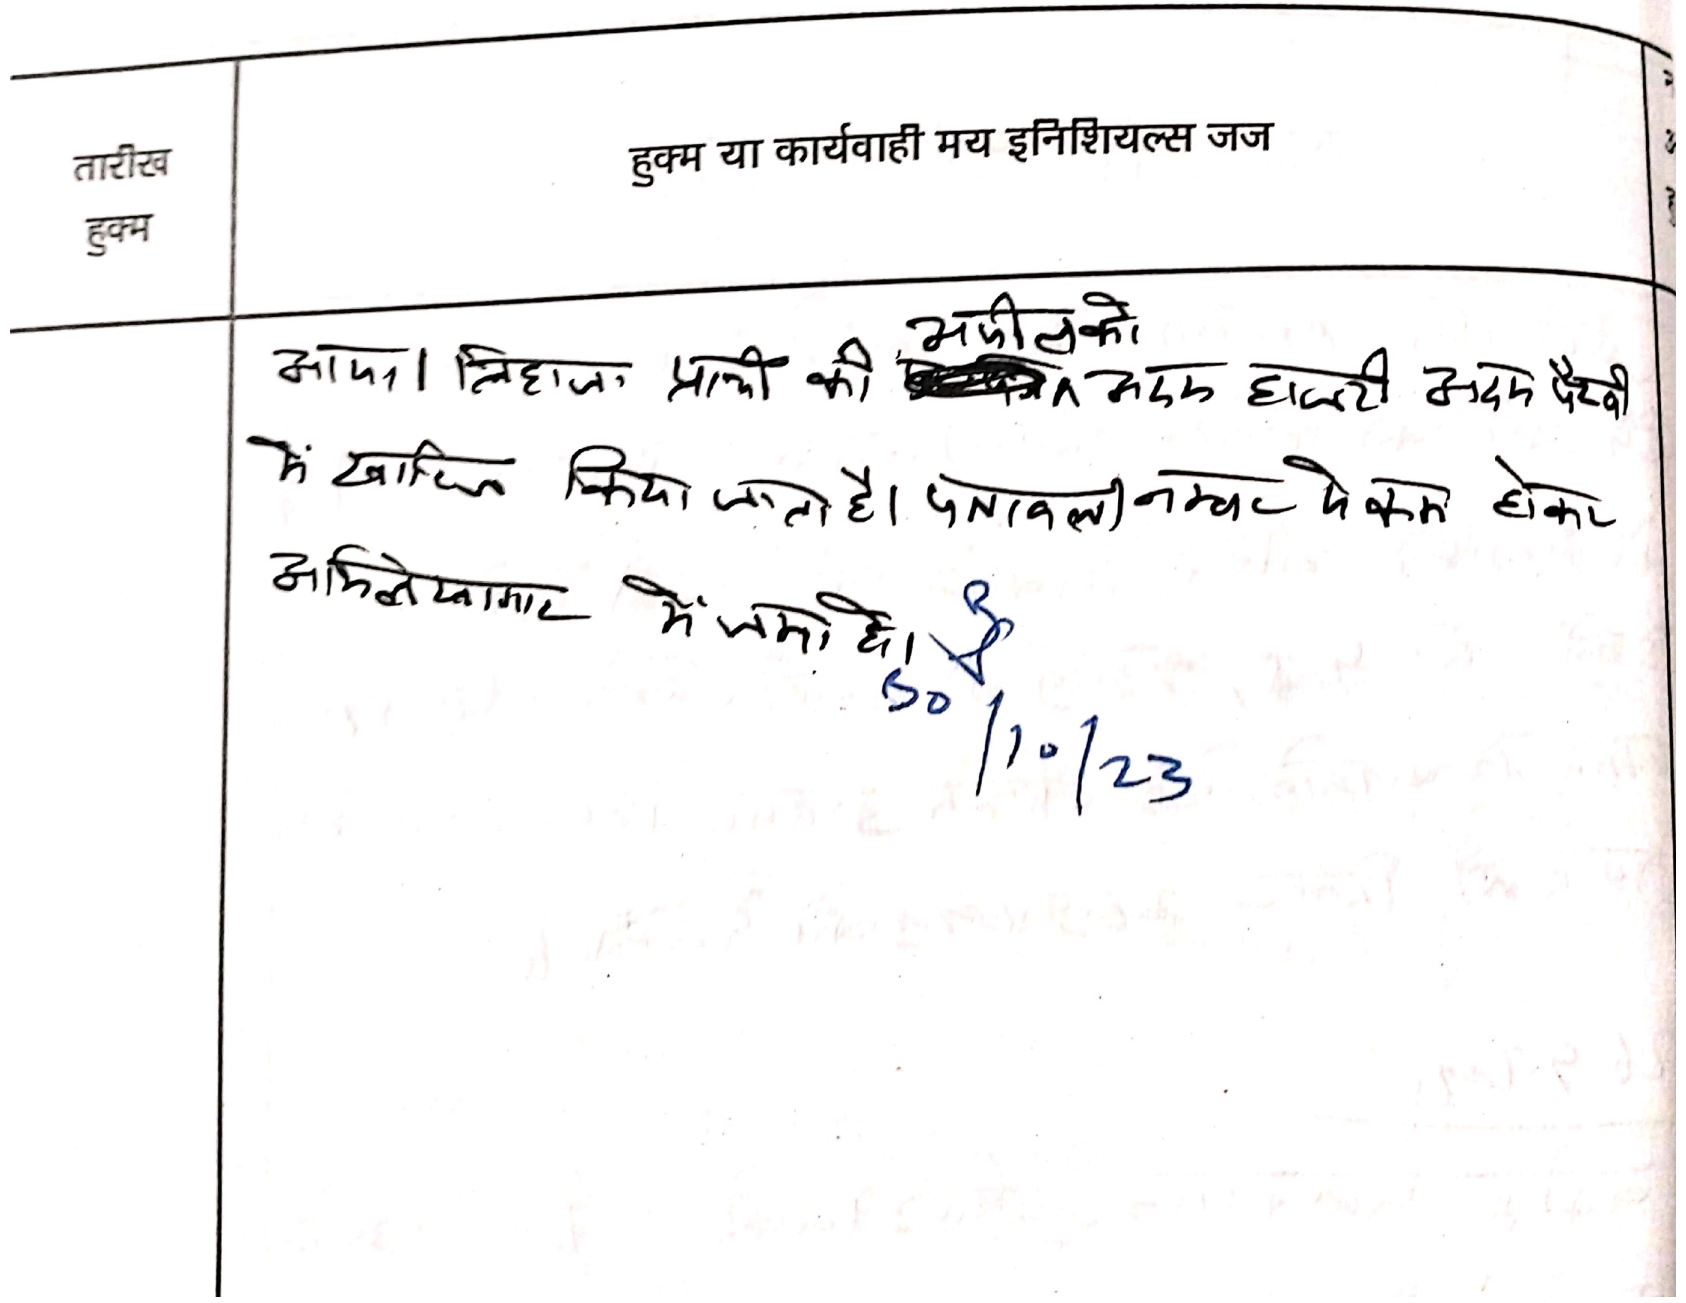 तारीख
हुक्म
हुक्म या कार्यवाही मय इनिशियल्स जज
अपील को
आया। लिहाजा प्रार्थी की अदम हाजरी अदम पैरवी
में खारिज किया जाता है। पत्रावली नम्बर से कम होकर
अभिलेखागार में जमा हो।
30/10/23